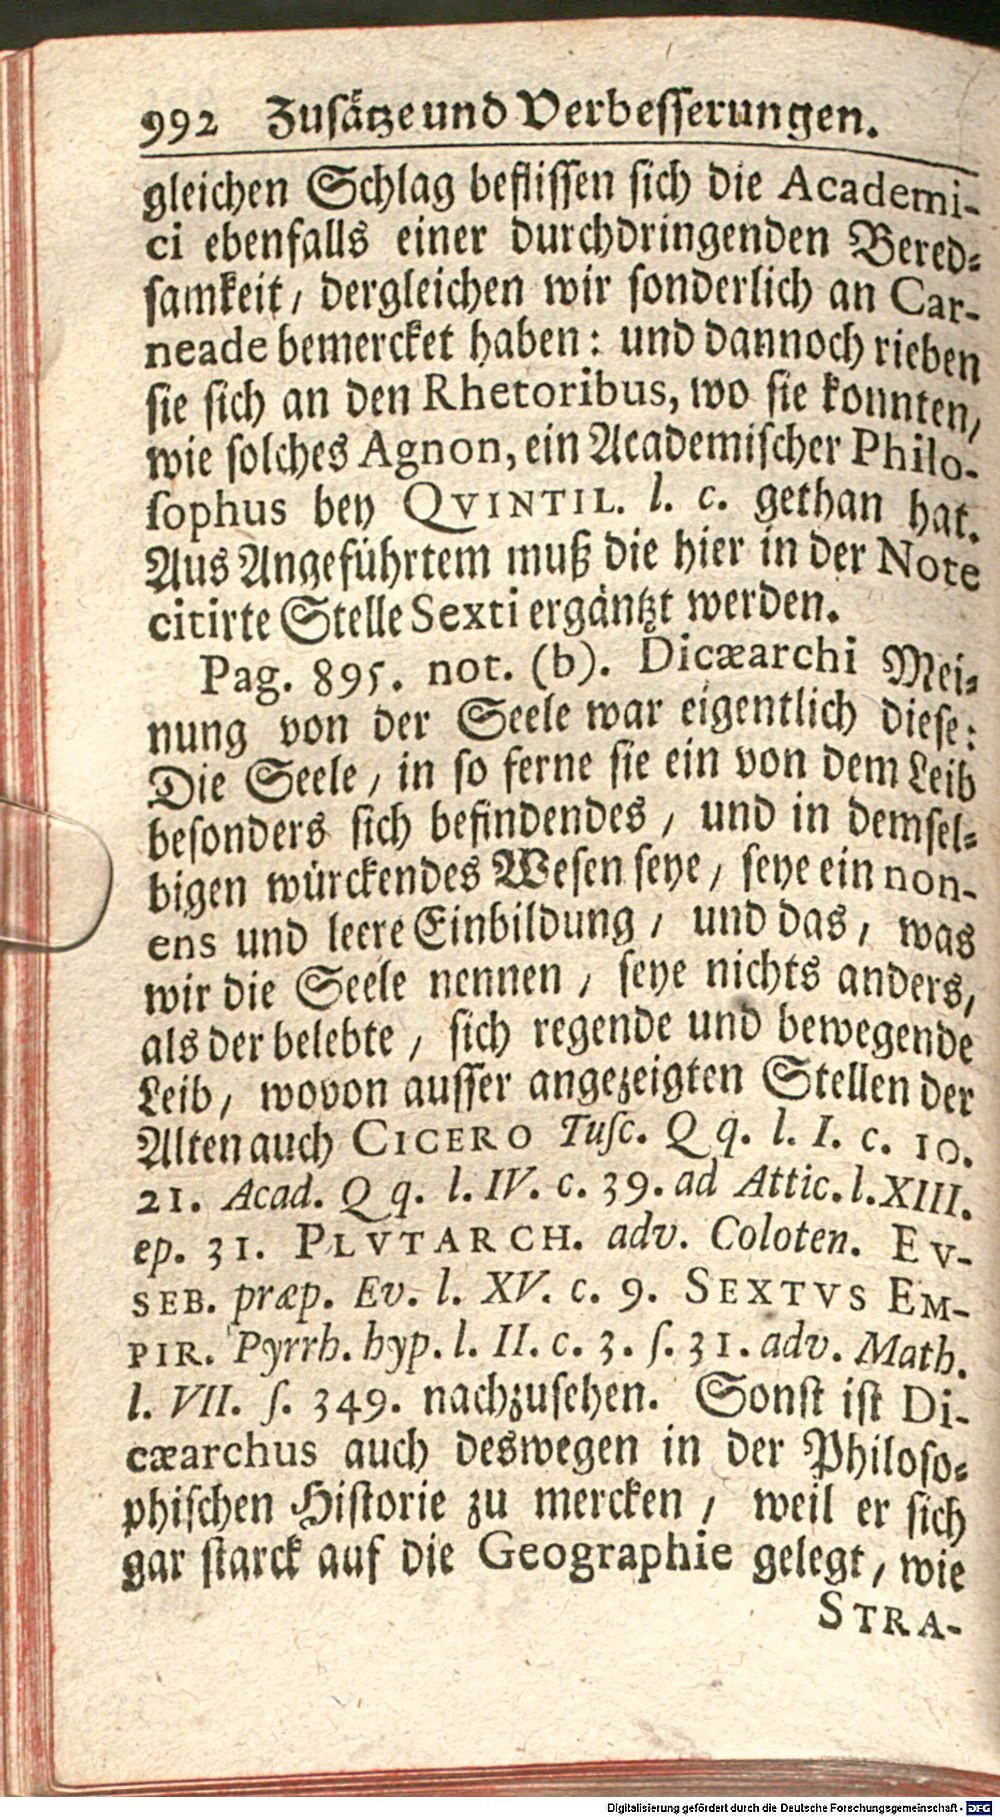 992 Zusätze und Verbesserungen.
gleichen Schlag beflissen sich die Academi-
ci ebenfalls einer durchdringenden Bered-
samkeit, dergleichen wir sonderlich an Car-
neade bemercket haben: und dannoch rieben
sie sich an den Rhetoribus, wo sie konnten,
wie solches Agnon, ein Academischer Philo-
sophus bey QVINTIL. l. c. gethan hat.
Aus Angeführtem muß die hier in der Note
citirte Stelle Sexti ergäntzt werden.
Pag. 895. not. (b). Dicæarchi Mei-
nung von der Seele war eigentlich diese:
Die Seele, in so ferne sie ein von dem Leib
besonders sich befindendes, und in demsel-
bigen würckendes Wesen seye, seye ein non-
ens und leere Einbildung, und das, was
wir die Seele nennen, seye nichts anders,
als der belebte, sich regende und bewegende
Leib, wovon ausser angezeigten Stellen der
Alten auch CICERO Tusc. Q q. l. I. c. 10.
21. Acad. Q q. l. IV. c. 39. ad Attic. l. XIII.
ep. 31. PLVTARCH. adv. Coloten. EV-
SEB. præp. Ev. l. XV. c. 9. SEXTVS EM-
PIR. Pyrrh. hyp. l. II. c. 3. ſ. 31. adv. Math.
l. VII. ſ. 349. nachzusehen. Sonst ist Di-
cæarchus auch deswegen in der Philoso-
phischen Historie zu mercken, weil er sich
gar starck auf die Geographie gelegt, wie
STRA-
Digitalisierung gefördert durch die Deutsche Forschungsgemeinschaft - DFG